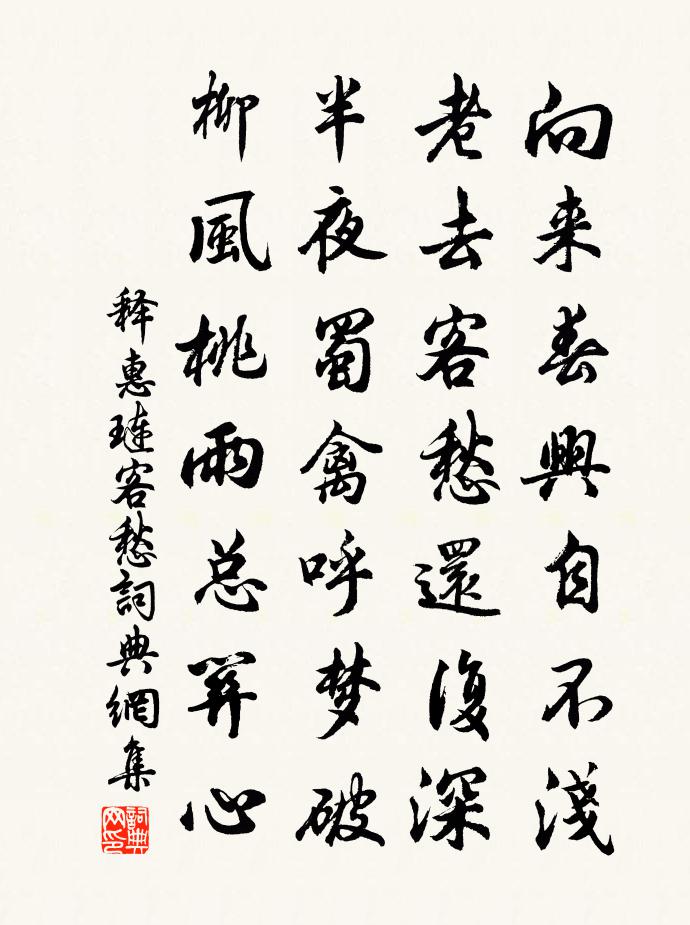 向来春興自不淺
老去客愁還復深
半夜蜀禽呼梦破
柳風桃雨总关心
释惠琏客愁詞典網集
詞典网印